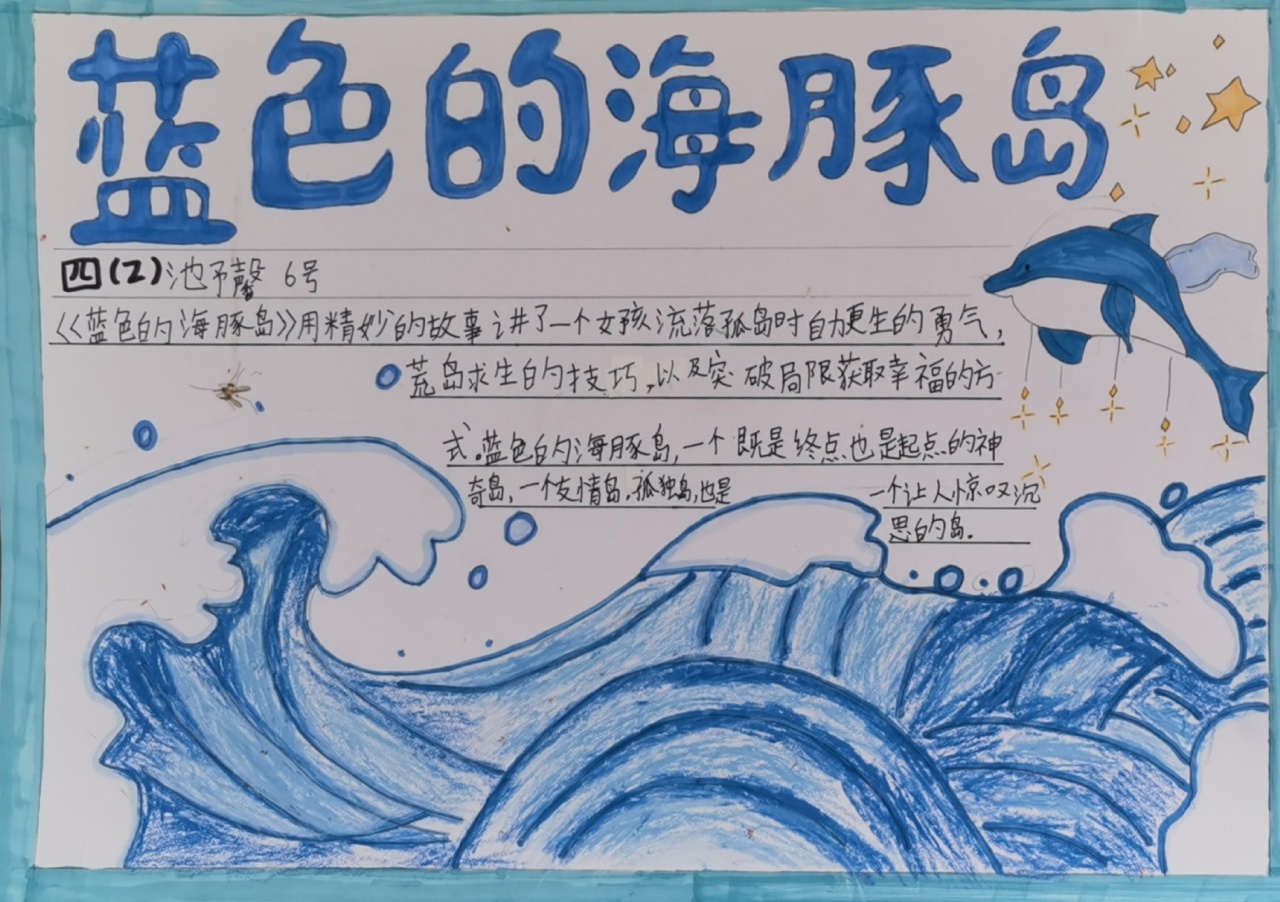 蓝色的海豚岛
四(2)池予馨 6号
《蓝色的海豚岛》用精妙的故事讲了一个女孩流落孤岛时自力更生的勇气,
荒岛求生的技巧,以及突破局限获取幸福的方
式.蓝色的海豚岛,一个既是终点也是起点的神
奇岛,一个友情岛.孤独岛,也是 一个让人惊叹沉
思的岛.